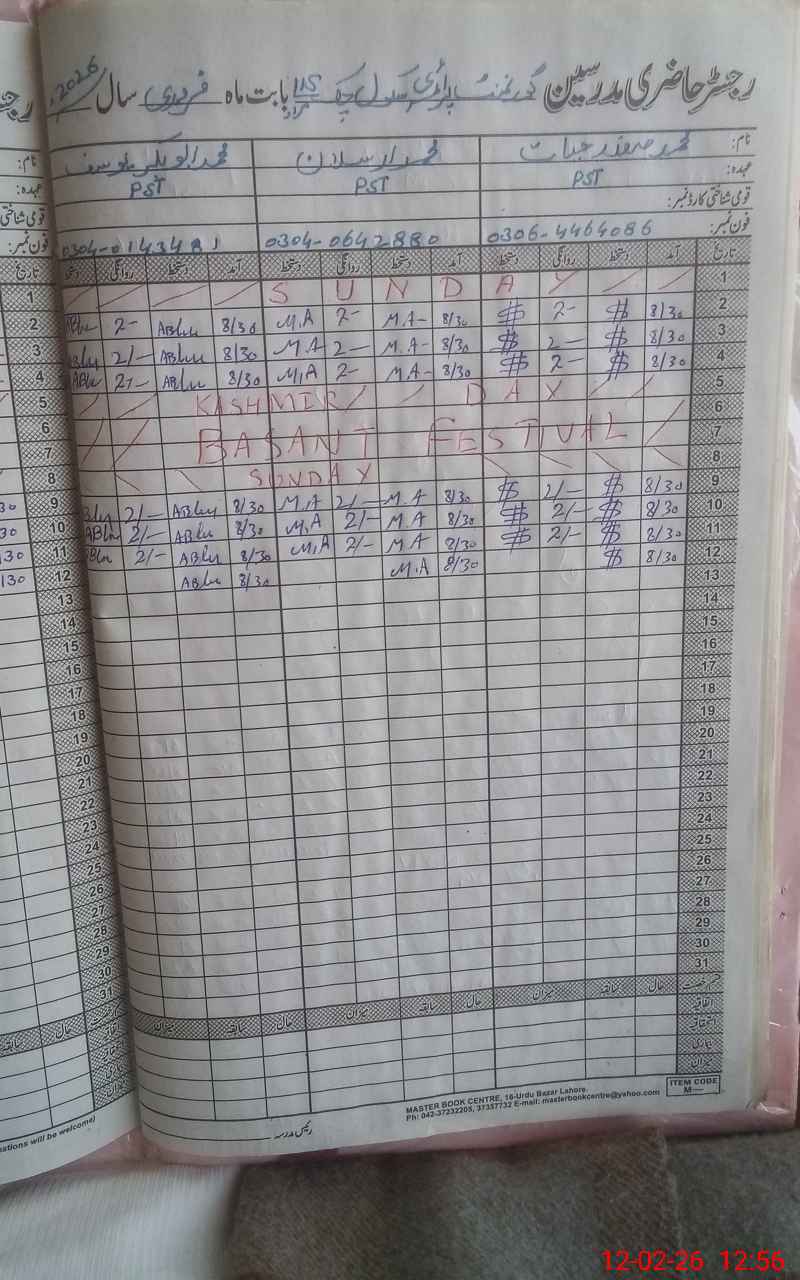 رجسٹر حاضری مدرسین گورنمنٹ پرائمری سکول چک 115 مراد بابت ماہ فروری سال 2026ء
نام: محمد صفدر حیات محمد ارسلان محمد ابوبکر یوسف
عہدہ: PST PST PST
قومی شناختی کارڈ نمبر:
فون نمبر: 0306-4464086 0304-0642880 0304-0143481
تاریخ آمد دستخط روانگی دستخط آمد دستخط روانگی دستخط آمد دستخط روانگی دستخط
1 SUNDAY
2 8/30 $ 2- $ 8/30 M.A- 2- M.A 8/30 ABku 2-
3 8/30 $ 2- $ 8/30 M.A- 2- M.A 8/30 ABku 2/-
4 8/30 $ 2- $ 8/30 M.A- 2- M.A 8/30 ABku 2/-
5 KASHMIR DAY
6
7 BASANT FESTIVAL
8 SUNDAY
9 8/30 $ 2/- $ 8/30 M.A 2/- M.A 8/30 ABku 2/-
10 8/30 $ 2/- $ 8/30 M.A 2/- M.A 8/30 ABku 2/-
11 8/30 $ 2/- $ 8/30 M.A 2/- M.A 8/30 ABku 2/-
12 8/30 $ 8/30 M.A 8/30 ABku
13
14
15
16
17
18
19
20
21
22
23
24
25
26
27
28
29
30
31
قسم رخصت حال سابقہ میزان حال سابقہ میزان حال سابقہ میزان
اتفاقیہ
استحقاقیہ
بیماری
میزان
ITEM CODE
M—
MASTER BOOK CENTRE, 16-Urdu Bazar Lahore.
Ph: 042-37232205, 37357732 E-mail: masterbookcentre@yahoo.com
رئیس مدرسہ
12-02-26 12:56